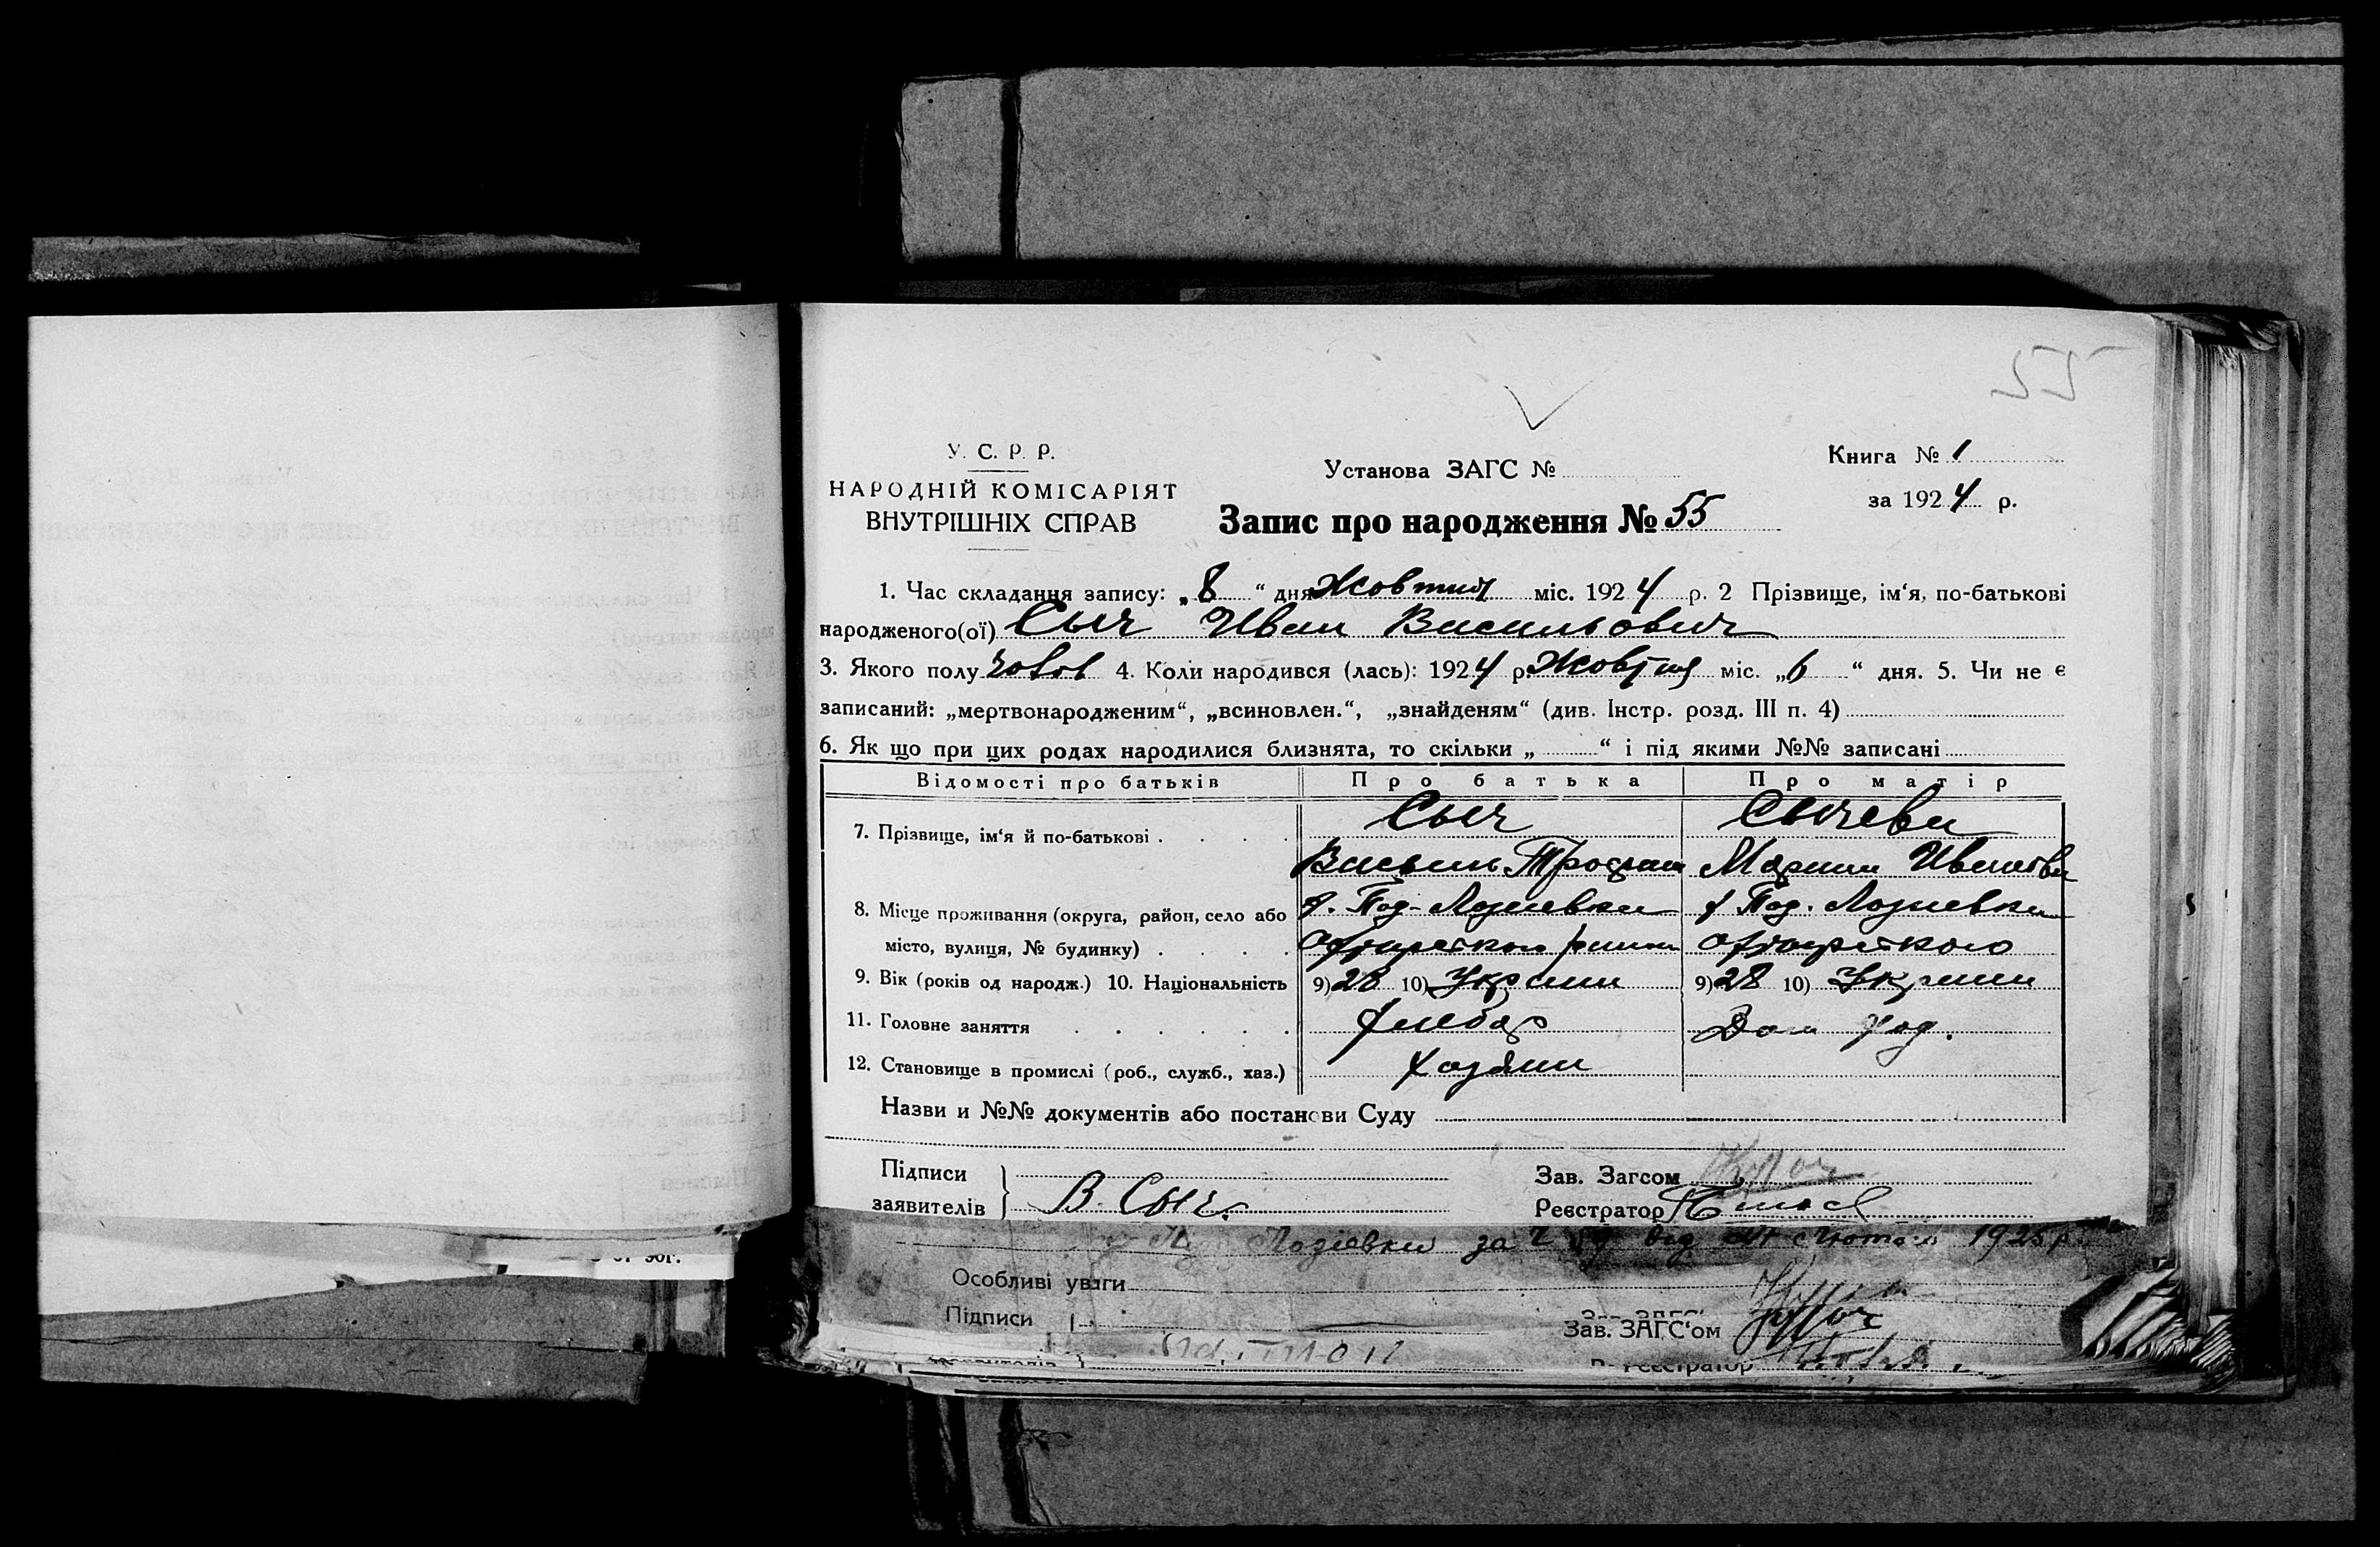 55
У. С. Р. Р.
НАРОДНІЙ КОМІСАРІЯТ
ВНУТРІШНІХ СПРАВ
Установа ЗАГС №
Запис про народження № 55
Книга № 1
за 1924 р.
1. Час складання запису: „8“ дня Жовтня міс. 1924 р. 2 Прізвище, ім‘я, по-батькові
народженого(ої) Сыч Иван Васильович
3. Якого полу 4. Коли народився (лась): 1924 р. Жовтня міс. „6“ дня. 5. Чи не є
записаний: „мертвонародженим“, „всиновлен.“, „знайденям“ (див. Інстр. розд. III п. 4)
6. Як що при цих родах народилися близнята, то скільки „ “ і під якими №№ записані
Відомості про батьків Про батька Про матір
7. Прізвище, ім‘я й по-батькові Сыч Сычева
Василь Марина
8. Місце проживання (округа, район, село або Под-Лозиевка Под. Лозиевка
місто, вулиця, № будинку)
9. Вік (років од народж.) 10. Національність 9) 28 10) 9) 28 10)
11. Головне заняття Дом
12. Становище в промислі (роб., служб., хаз.) хозяин
Назви и №№ документів або постанови Суду
Підписи
заявителів В. Сыч.
Зав. Загсом
Реєстратор
Лозіевки за № від 24 Лютого 1925 р.
Особливі уваги
Підписи
Зав. ЗАГС‘ом
Реєстратор